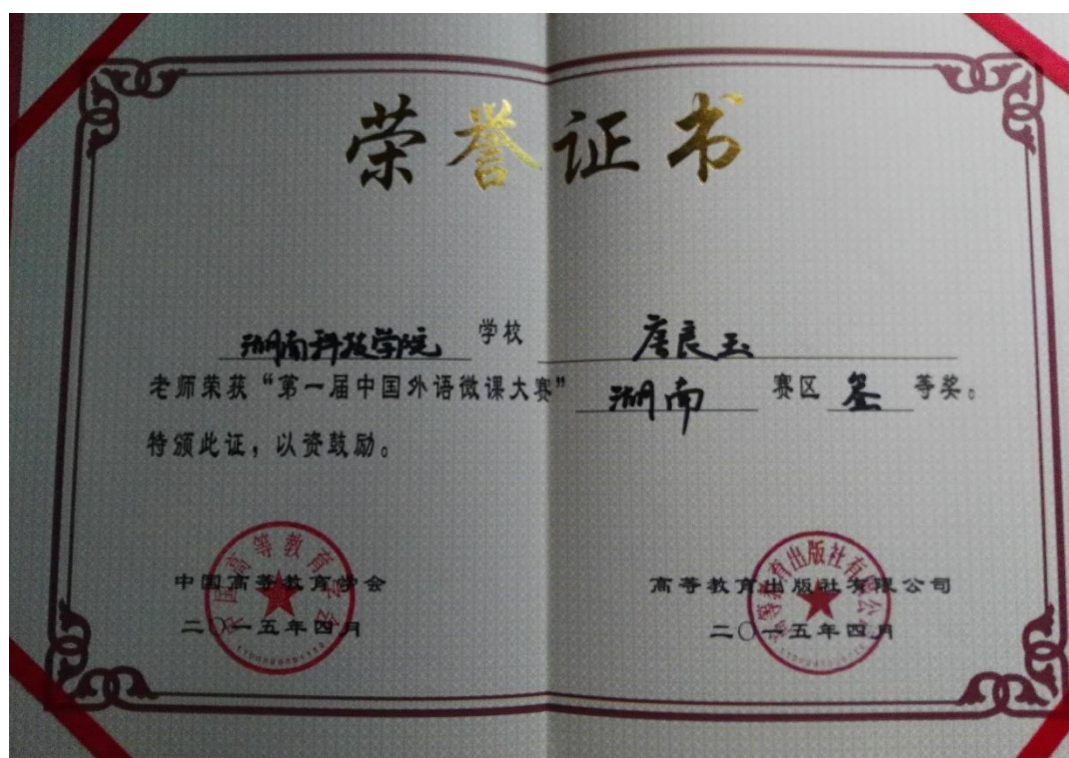 荣誉证书
湖南科技学院 学校 唐良玉
老师荣获“第一届中国外语微课大赛” 湖南 赛区 等奖。
特颁此证，以资鼓励。
中国高等教育学会
二〇一五年四月
高等教育出版社有限公司
二〇一五年四月